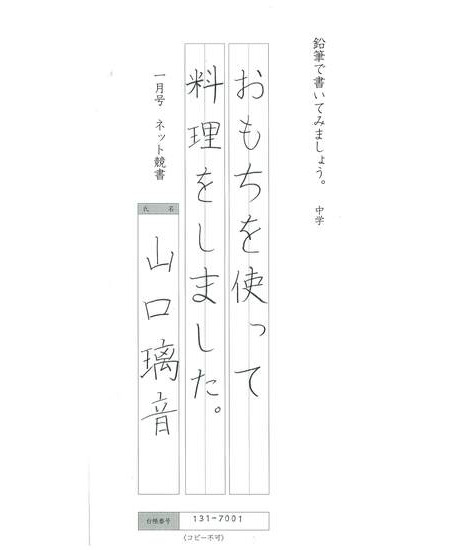 鉛筆で書いてみましょう。 中学
おもちを使って
料理をしました。
一月号 ネット競書
氏名
山口璃音
台帳番号 131-7001
(コピー不可)